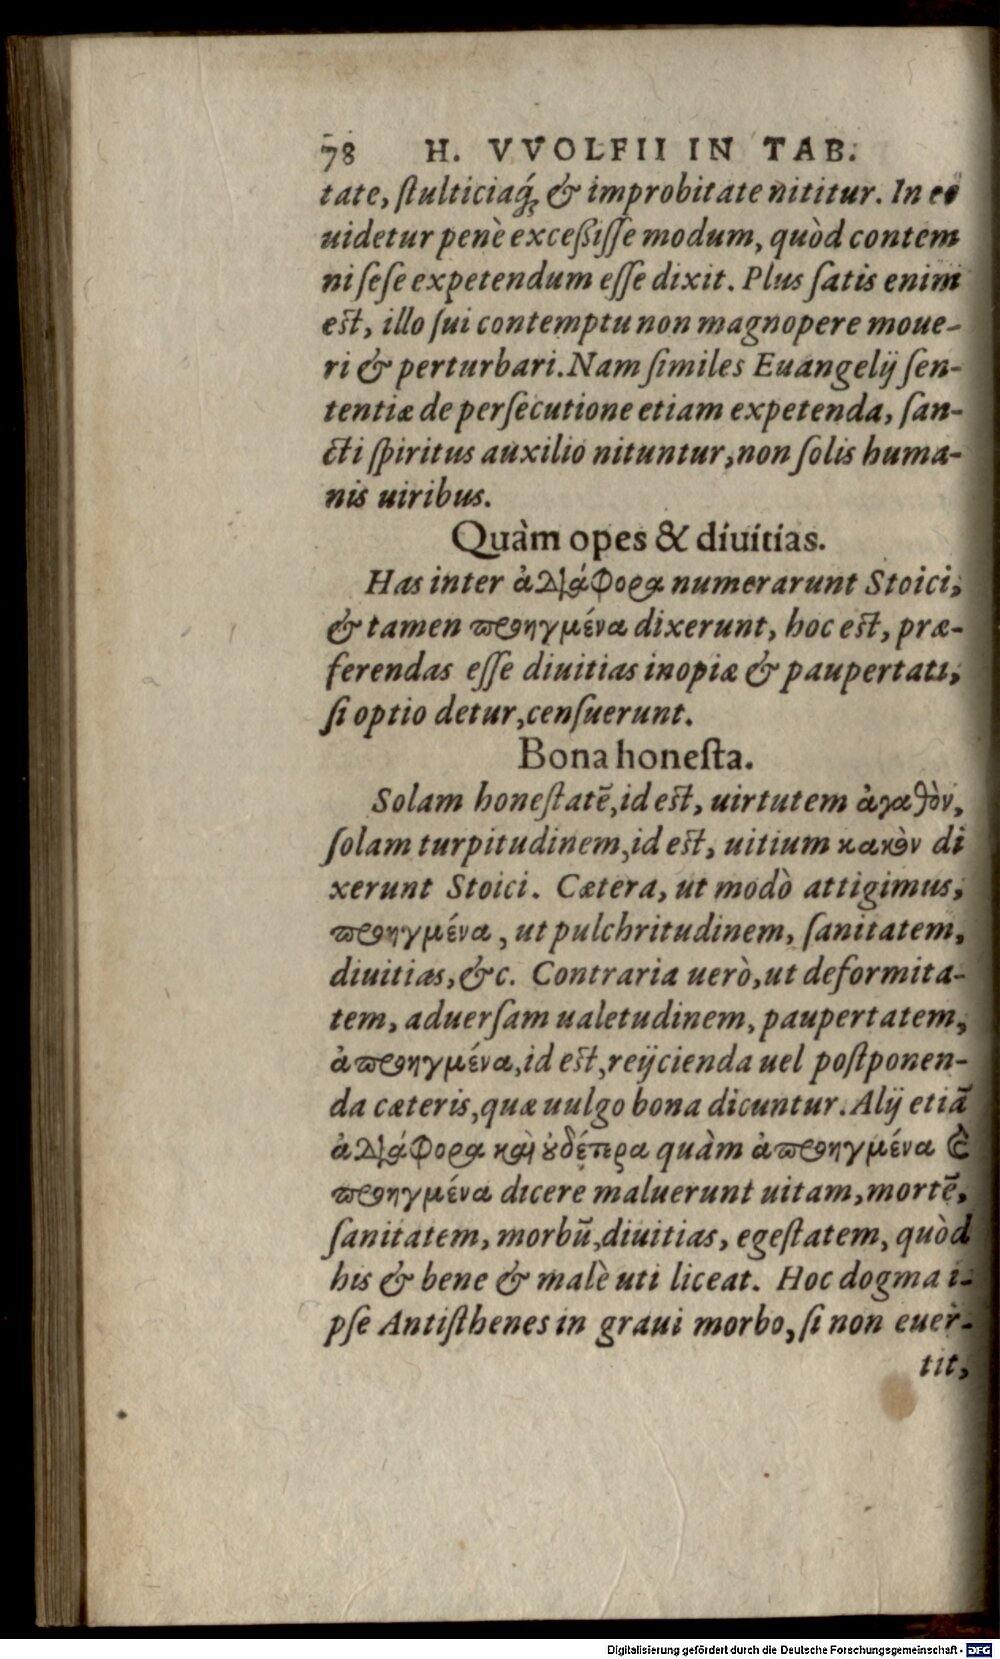 78 H. VVOLFII IN TAB.
tate, ſtulticiaq́ꝫ & improbitate nititur. In eo
uidetur penè exceßiſſe modum, quòd contem
ni ſeſe expetendum eſſe dixit. Plus ſatis enim
eſt, illo ſui contemptu non magnopere moue-
ri & perturbari. Nam ſimiles Euangelij ſen-
tentiæ de perſecutione etiam expetenda, ſan-
cti ſpiritus auxilio nituntur, non ſolis huma-
nis uiribus.
Quàm opes & diuitias.
Has inter ἀδιάφορα numerarunt Stoici,
& tamen προηγμένα dixerunt, hoc eſt, præ-
ferendas eſſe diuitias inopiæ & paupertati,
ſi optio detur, cenſuerunt.
Bona honeſta.
Solam honeſtatē, id eſt, uirtutem ἀγαθὸν,
ſolam turpitudinem, id eſt, uitium κακὸν di
xerunt Stoici. Cætera, ut modò attigimus,
προηγμένα, ut pulchritudinem, ſanitatem,
diuitias, &c. Contraria uerò, ut deformita-
tem, aduerſam ualetudinem, paupertatem,
ἀπροηγμένα, id eſt, reijcienda uel poſtponen-
da cæteris, quæ uulgo bona dicuntur. Alij etiā
ἀδιάφορα καὶ ȣδέτερα quàm ἀπροηγμένα &
προηγμένα dicere maluerunt uitam, mortē,
ſanitatem, morbū, diuitias, egeſtatem, quòd
his & bene & malè uti liceat. Hoc dogma i-
pſe Antiſthenes in graui morbo, ſi non euer-
tit,
Digitalisierung gefördert durch die Deutsche Forschungsgemeinschaft - DFG